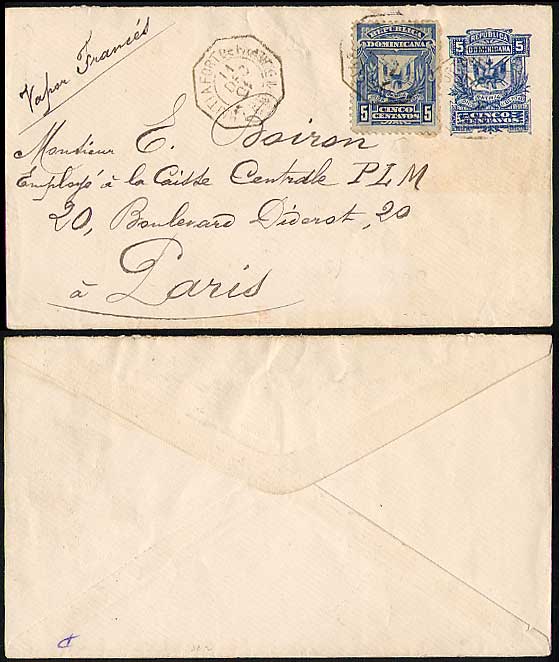 Vapor Francés
REPUBLICA
DOMINICANA
5 5
CINCO
CENTAVOS
REPUBLICA
5 DOMINICANA 5
CINCO
CENTAVOS
Monsieur E. Boiron
Employé à la Caisse Centrale PLM
20, Boulevard Diderot, 20
à Paris